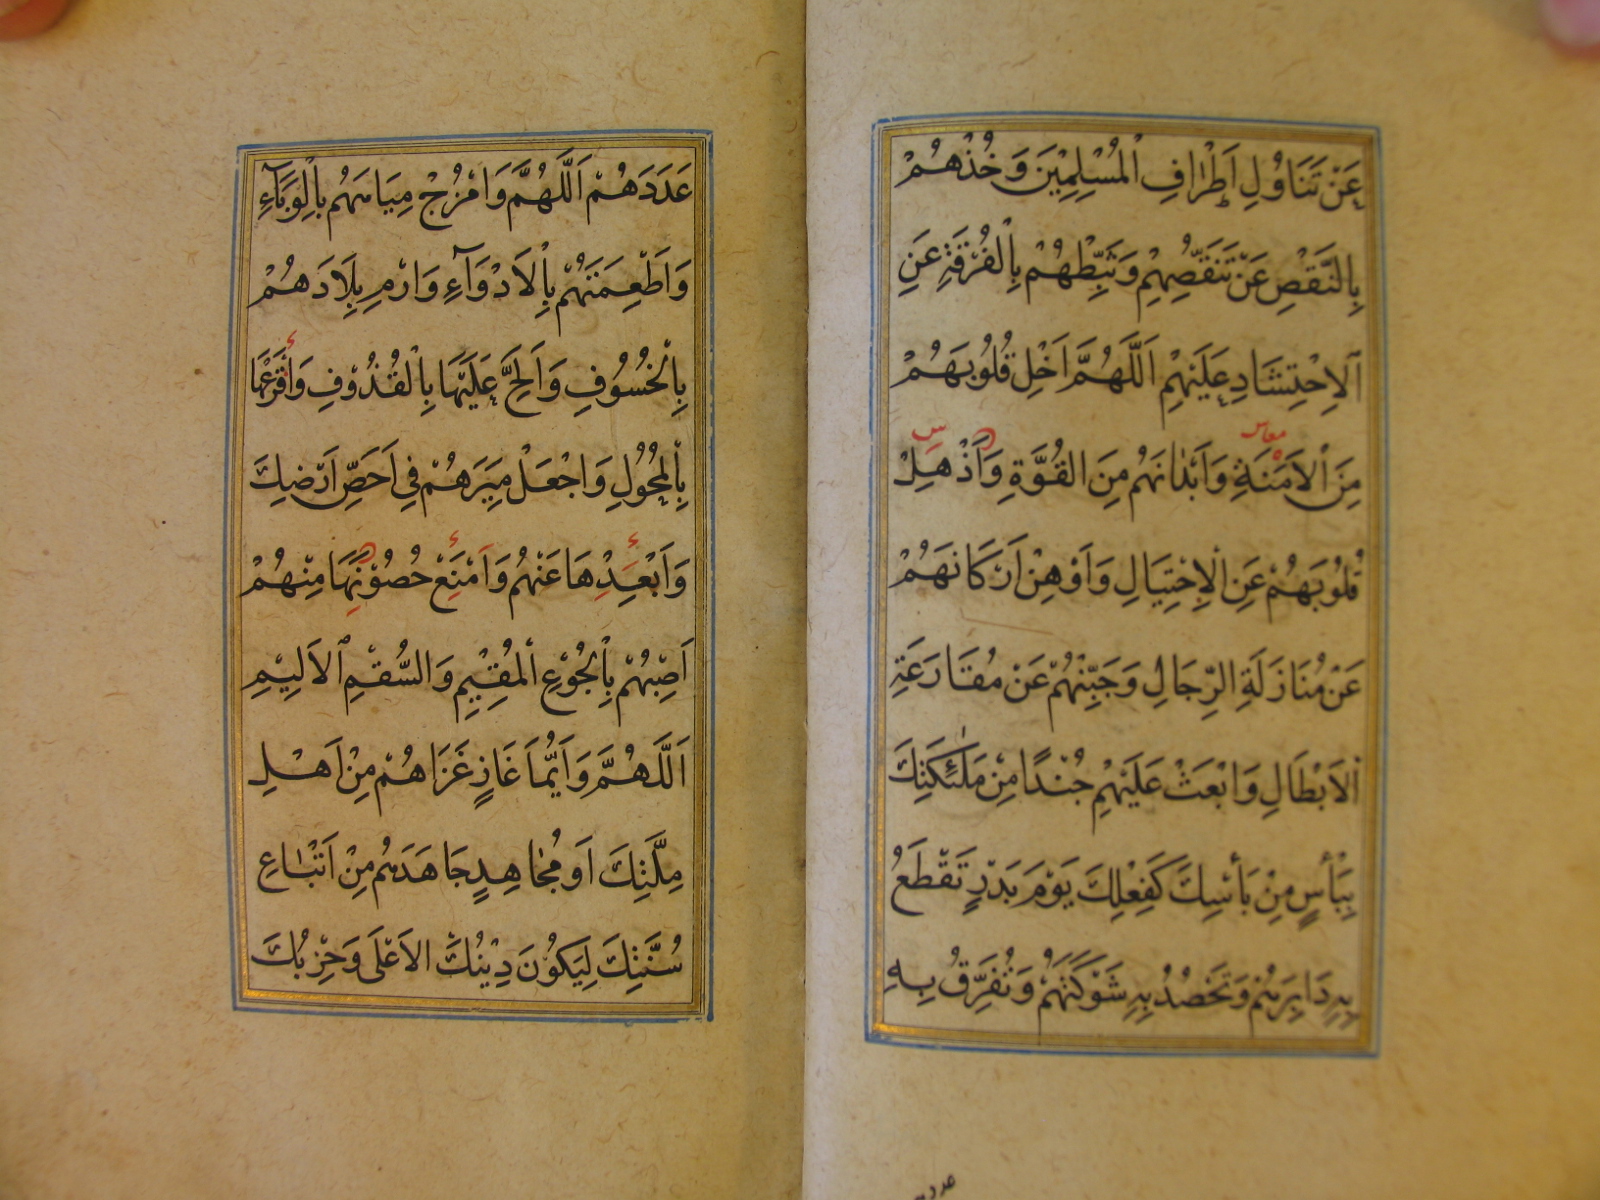 عَنْ تَنَاوُلِ اَطْرٰافِ الْمُسْلِمِيْنَ وَخُذْهُمْ
بِالنَّقْصِ عَنْ تَنَقُّصِهِمْ وَثَبِّطْهُمْ بِالْفُرْقَةِ عَنِ
الْاِحْتِشَادِ عَلَيْهِمْ اَللّٰهُمَّ اَخْلِ قُلُوبَهُمْ
مِنَ الْاَمَنَةِ وَاَبْدٰانَهُمْ مِنَ الْقُوَّةِ وَاَذْهِلْ
قُلُوبَهُمْ عَنِ الْاِحْتِيَالِ وَاَوْهِنْ اَرْكَانَهُمْ
عَنْ مُنَازَلَةِ الرِّجَالِ وَجَبِّنْهُمْ عَنْ مُقَارَعَةِ
الْاَبْطَالِ وَابْعَثْ عَلَيْهِمْ جُنْدًا مِنْ مَلٰئِكَتِكَ
بِبَأْسٍ مِنْ بَأْسِكَ كَفِعْلِكَ يَوْمَ بَدْرٍ تَقْطَعُ
بِهِ دَابِرَهُمْ وَتَحْصُدُ بِهِ شَوْكَتَهُمْ وَتُفَرِّقُ بِهِ
عدد
عَدَدَهُمْ اَللّٰهُمَّ وَامْزُجْ مِيَاهَهُمْ بِالْوَبَآءِ
وَاَطْعِمَتَهُمْ بِالْاَدْوَآءِ وَارْمِ بِلَادَهُمْ
بِالْخُسُوفِ وَاَلِحَّ عَلَيْهَا بِالْقُذُوفِ وَأَقْرَعْهَا
بِالْمُحُولِ وَاجْعَلْ مِيَرَهُمْ فِي اَحَصِّ اَرْضِكَ
وَاَبْعَدِهَا عَنْهُمْ وَاَمْنَعْ حُصُوْنِهَا مِنْهُمْ
اَصِبْهُمْ بِالْجُوْعِ الْمُقِيْمِ وَالسُّقْمِ الْاَلِيْمِ
اَللّٰهُمَّ وَاَيُّمَا غَازٍ غَزَاهُمْ مِنْ اَهْلِ
مِلَّتِكَ اَوْ مُجٰاهِدٍ جَاهَدَهُمْ مِنْ اَتْبٰاعِ
سُنَّتِكَ لِيَكُوْنَ دِيْنُكَ الْاَعْلَى وَحِزْبُكَ